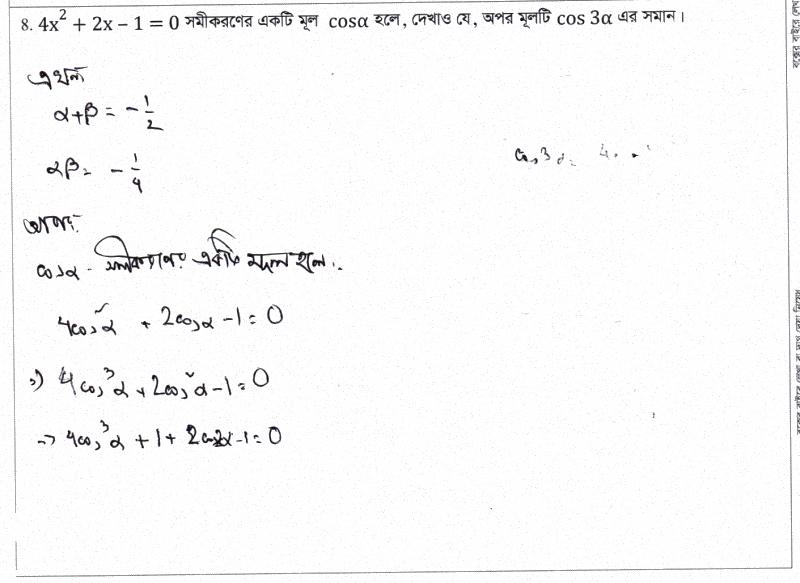 8. 4x² + 2x − 1 = 0 সমীকরণের একটি মূল cosα হলে, দেখাও যে, অপর মূলটি cos 3α এর সমান।
এখন
α+β = −1/2
αβ = −1/4
cos3α = 4
আবার
cosα - সমীকরণের একটি মূল হলে..
4cos²α + 2cosα − 1 = 0
⇒) 4cos³α + 2cos²α − 1 = 0
⇒ 4cos³α + 1 + 2cos2α − 1 = 0